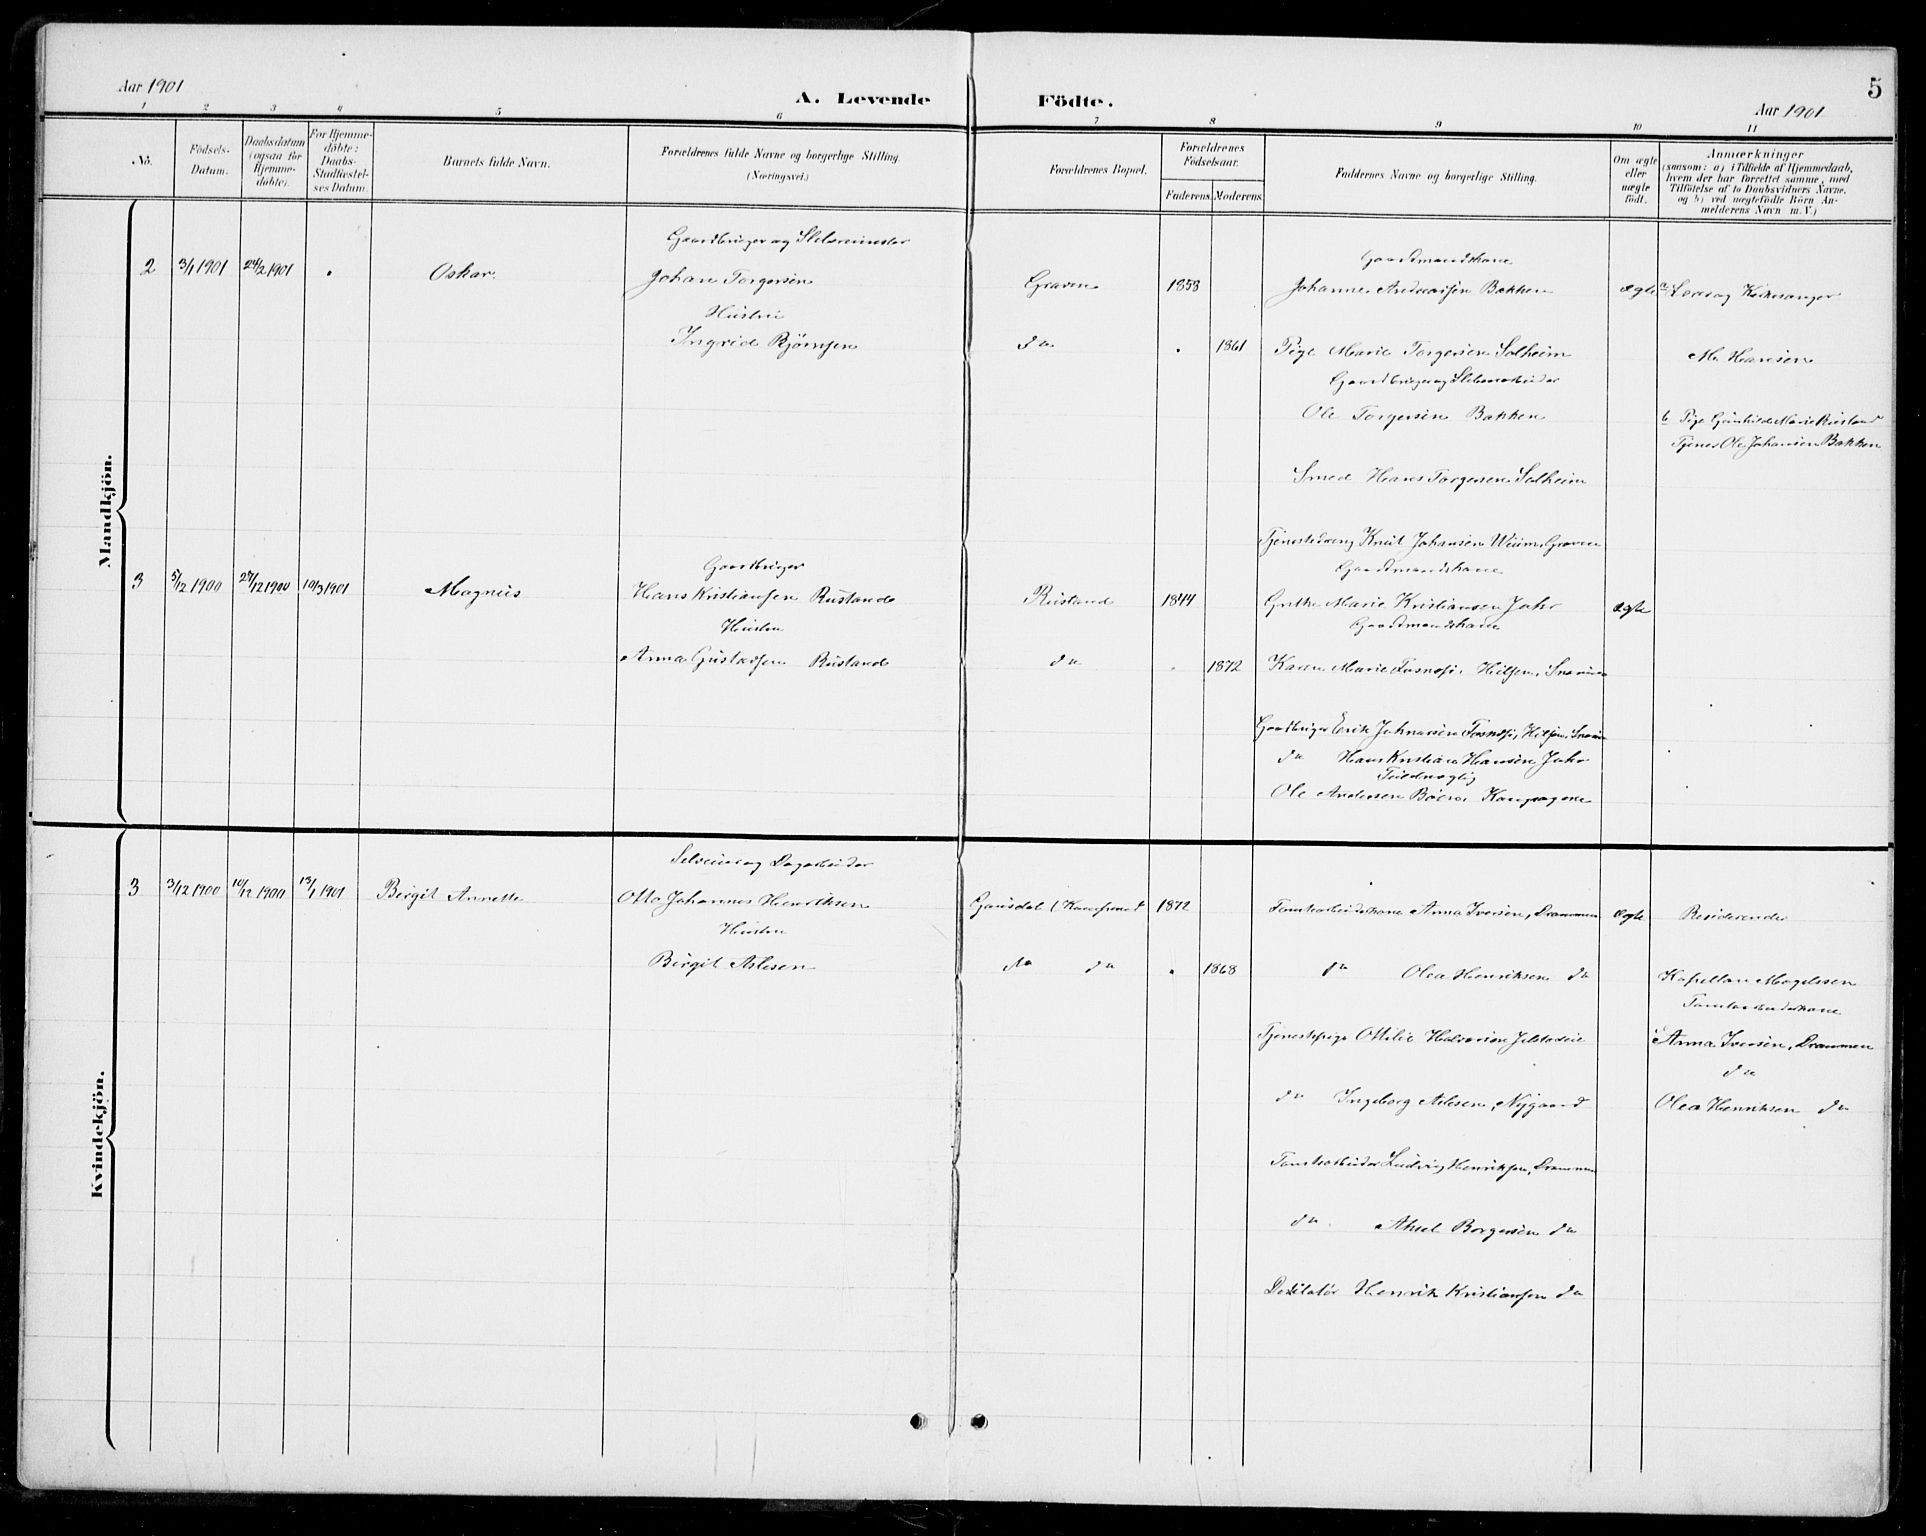 Aar 1901
A. Levende Födte.
5
Aar 1901
1 2 3 4 5 6 7 8 9 10 11
No.
Födsels-Datum.
Daabsdatum (ogsaa for Hjemmedöbte).
For Hjemmedöbte: Daabs-Stadfæstelses Datum.
Barnets fulde Navn.
Forældrenes fulde Navne og borgerlige Stilling. (Næringsvei.)
Forældrenes Bopæl.
Forældrenes Födselsaar.
Faderens. Moderens.
Faddernes Navne og borgerlige Stilling.
Om ægte eller uægte födt.
Anmærkninger
(saasom: a) i Tilfælde af Hjemmedaab,
hvem der har forrettet samme, med
Tilföielse af to Daabsvidners Navne,
og b) ved uægtefödte Börn An-
melderens Navn m. V.)
Mandkjön.
Gaardbruger og
2 3/1 1901 24/2 1901 Oskar.
Johan Torgersen
Hustru
Ingrid Björnsen
Graven 1858
do 1861
Gaardmandskone
Johanne Andersen Bakken
Pige Marie Torgersen Solheim
Gaardbruger og
Ole Torgersen Bakken
Smed Hans Torgersen Solheim
Tjenestedreng Knut Johansen Graven
ægte
a Kirkesanger
M. Hansen
b Pige Gunhild Marie Rustand
Tjener Ole Johansen Bakken
3 5/12 1900 27/12 1900 10/3 1901 Magnus
Gaardbruger
Hans Kristiansen Rustand
Hustru
Anna Gustavsen Rustand
Rustand 1844
do 1872
Gaardmandskone
Grethe Marie Kristiansen
Gaardmandskone
Karen Marie
Gaardbruger Erik
do Hans Kristian Hansen
Ole Andersen
ægte
Kvindekjön.
Selveier og Dagarbeider
3 3/12 1900 10/12 1900 13/1 1901 Birgit Annette
Otto Johannes Henriksen
Hustru
Birgit Aslesen
1872
do do 1868
Anna Iversen, Drammen
do Olea Henriksen do
Tjenestepige Ottilie Halvorsen
do Ingeborg Aslesen, Nygaard
Ludvig Henriksen, Drammen
do Aksel Borgersen do
Henrik Kristiansen do
ægte
Residerende
Kapellan Magelssen
Anna Iversen, Drammen
do
Olea Henriksen do